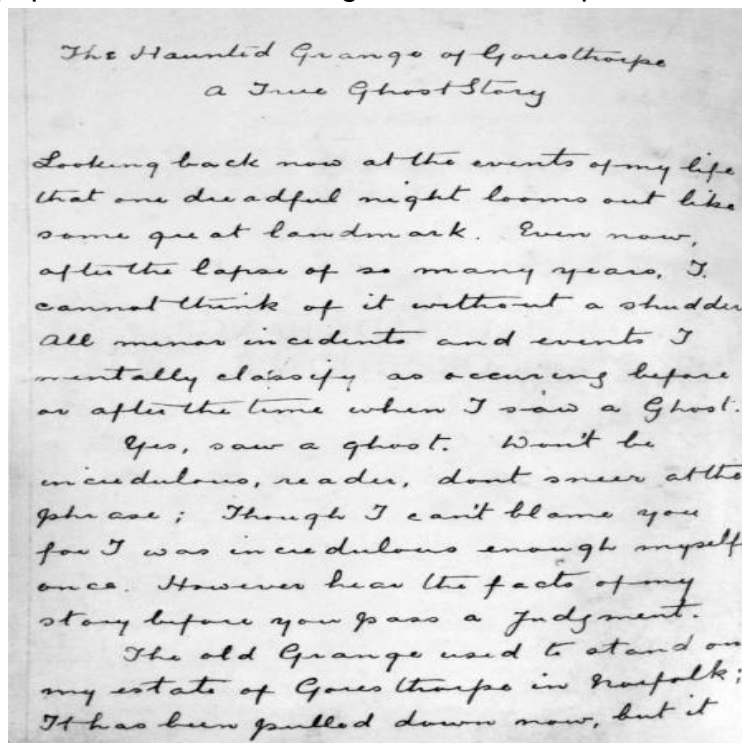 The Haunted Grange of Goresthorpe
A True Ghost Story
Looking back now at the events of my life
that one dreadful night looms out like
some great landmark. Even now,
after the lapse of so many years, I
cannot think of it without a shudder
All minor incidents and events I
mentally classify as occuring before
or after the time when I saw a Ghost.
Yes, saw a ghost. Won't be
incredulous, reader, dont sneer at the
phrase; Though I can't blame you
for I was incredulous enough myself
once. However hear the facts of my
story before you pass a Judgment.
The old Grange used to stand on
my estate of Goresthorpe in Norfolk;
It has been pulled down now, but it